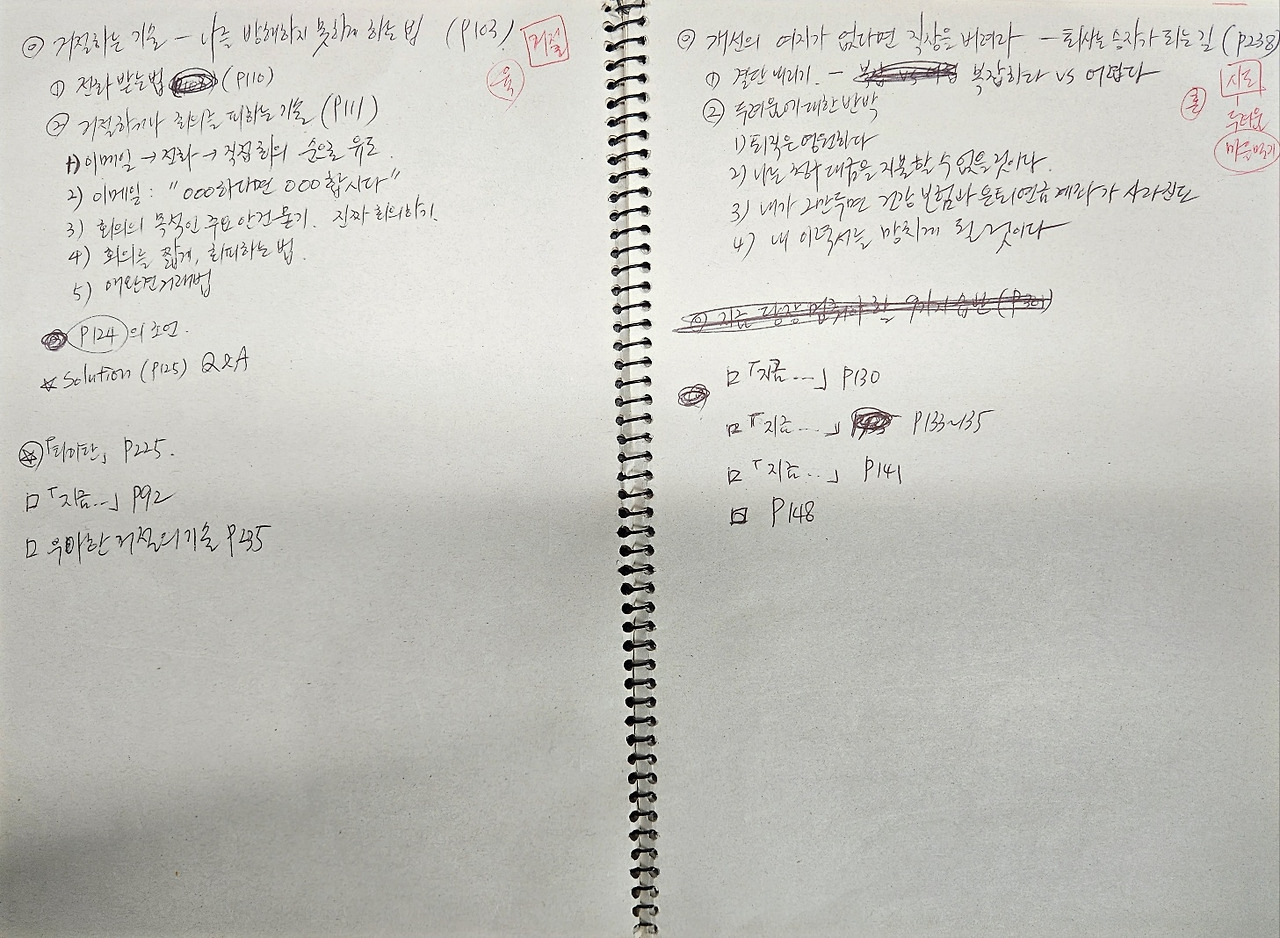 ◎ 거절하는 기술 - 나를 방해하지 못하게 하는 법 (P103)
거절
육
① 전화 받는법 (P110)
② 거절하거나 회의를 피하는 기술 (P111)
1) 이메일 → 전화 → 직접 회의 순으로 유도.
2) 이메일 : "OOO하다면 OOO합시다"
3) 회의의 목적인 주요 안건 묻기. 진짜 회의하기.
4) 회의를 짧게, 회피하는 법.
5) 애완견 거래법
P124의 조언.
☆ Solution (P125) Q&A
☆ 「타이탄」 P225.
□ 「지금...」 P92
□ 우아한 거절의 기술 P235
◎ 개선의 여지가 없다면 직장을 버려라 - 퇴사는 승자가 되는 길 (P238)
① 결단 내리기. - 복잡하다 vs 어렵다
② 두려움에 대한 반박
두려움
마음먹기
1) 퇴직은 영원하다
2) 나는 청구 대금을 지불할 수 없을 것이다.
3) 내가 그만두면 건강 보험과 은퇴 연금 계좌가 사라진다
4) 내 이력서를 망치게 될 것이다
◎ 지금 당장 멈춰야 할 9가지 습관 (P301)
□ 「지금...」 P130
□ 「지금...」 P133~135
□ 「지금...」 P141
□ P148